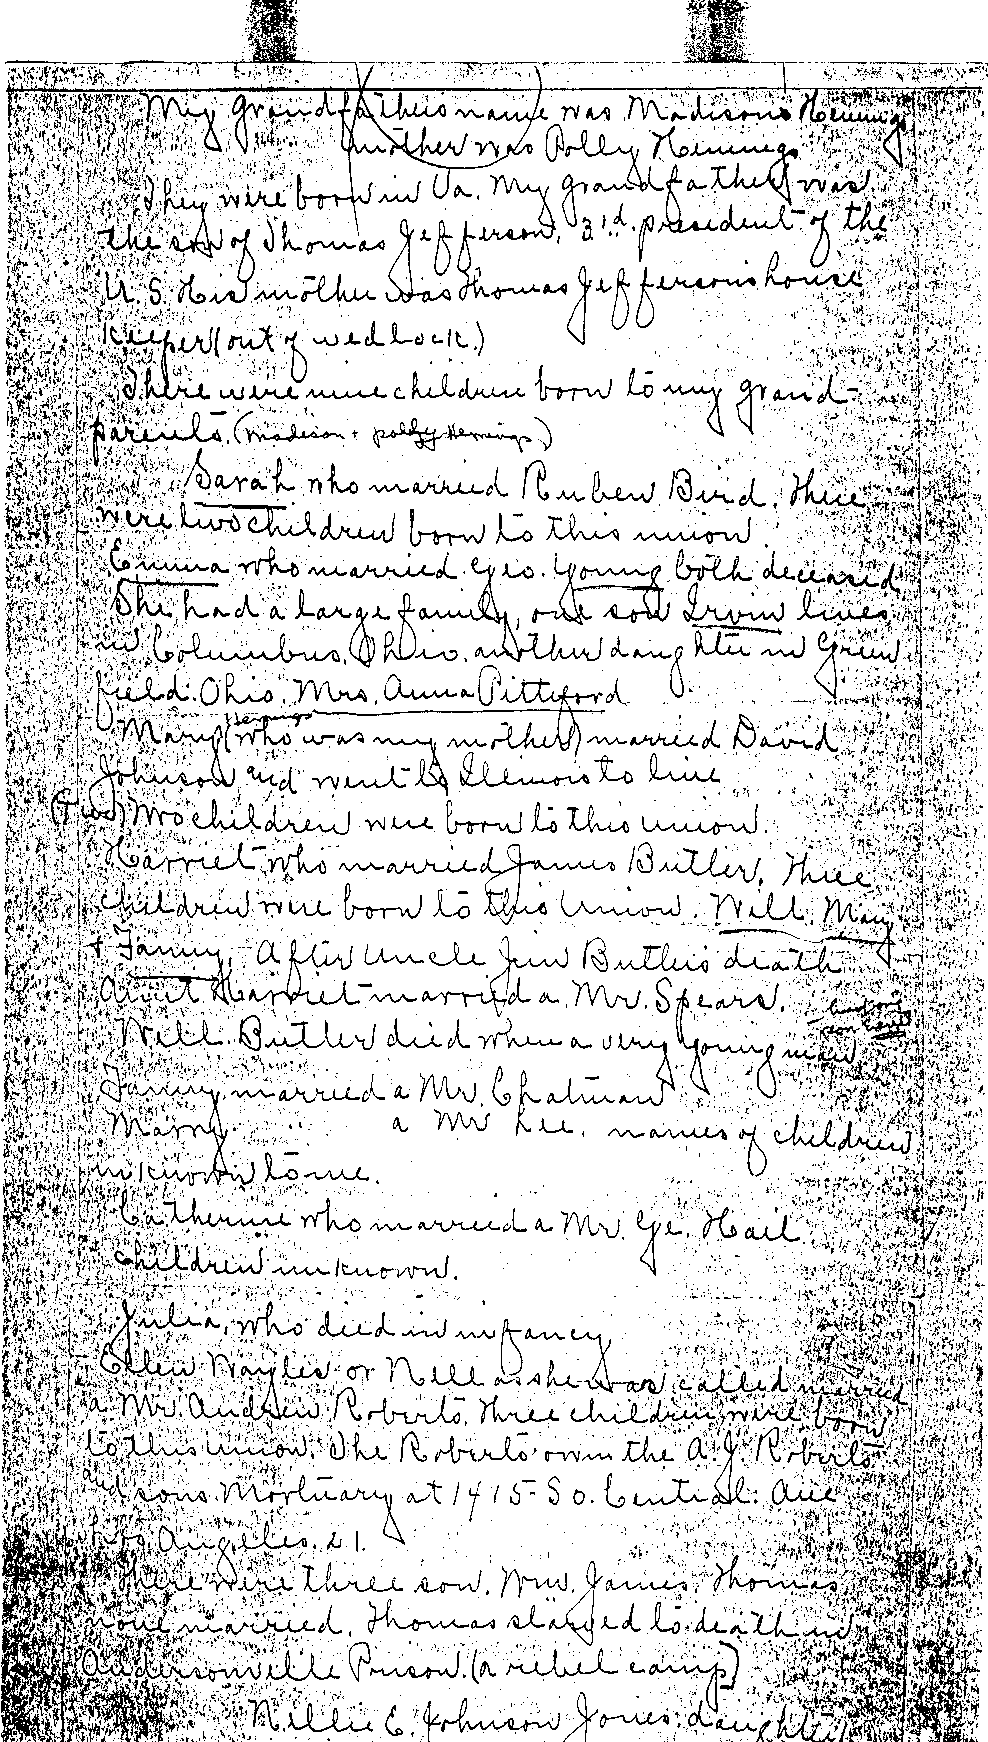 My Grandfathers name was Madison Hemings
mother was Polly Hemings
They were born in Va. My grandfather was
the son of Thomas Jefferson, 3rd. president of the
U. S. His mother was Thomas Jeffersons house
keeper (out of wedlock.)
There were nine children born to my grand-
parents. (Madison + polly Hemings)
Sarah who married Ruben Bird. There
were two children born to this union.
Emma who married Geo. Young both deceased
She had a large family, one son Irvin lives
in Columbus, Ohio. another daughter in Green
field. Ohio. Mrs. Anna Pittiford
Hemings
Mary (who was my mother) married David
Johnson and went to Illinois to live
(two) Two children were born to this union.
Harriet who married James Butler, Three
children were born to this Union. Will, Mary
+ Fanny, After Uncle Jim Butler's death
Aunt Harriet married a Mr. Spears.
Will Butler died when a very young man
Fanny married a Mr. Chatman
Mary a Mr Lee. names of children
unknown to me.
Catherine who married a Mr. Ge. Hail
children unknown.
Julia, who died in infancy
Ellen Wayles or Nell as she was called married
a Mr. Andrew Roberts. Three children were born
to this union. The Roberts own the A. J. Roberts
and sons. Mortuary at 1415 So. Central. Ave
Los Angeles. 21.
There were three son. Wm. James. Thomas
none married. Thomas starved to death in
Andersonville Prison. (a rebel camp)
Nellie E. Johnson Jones. daughter